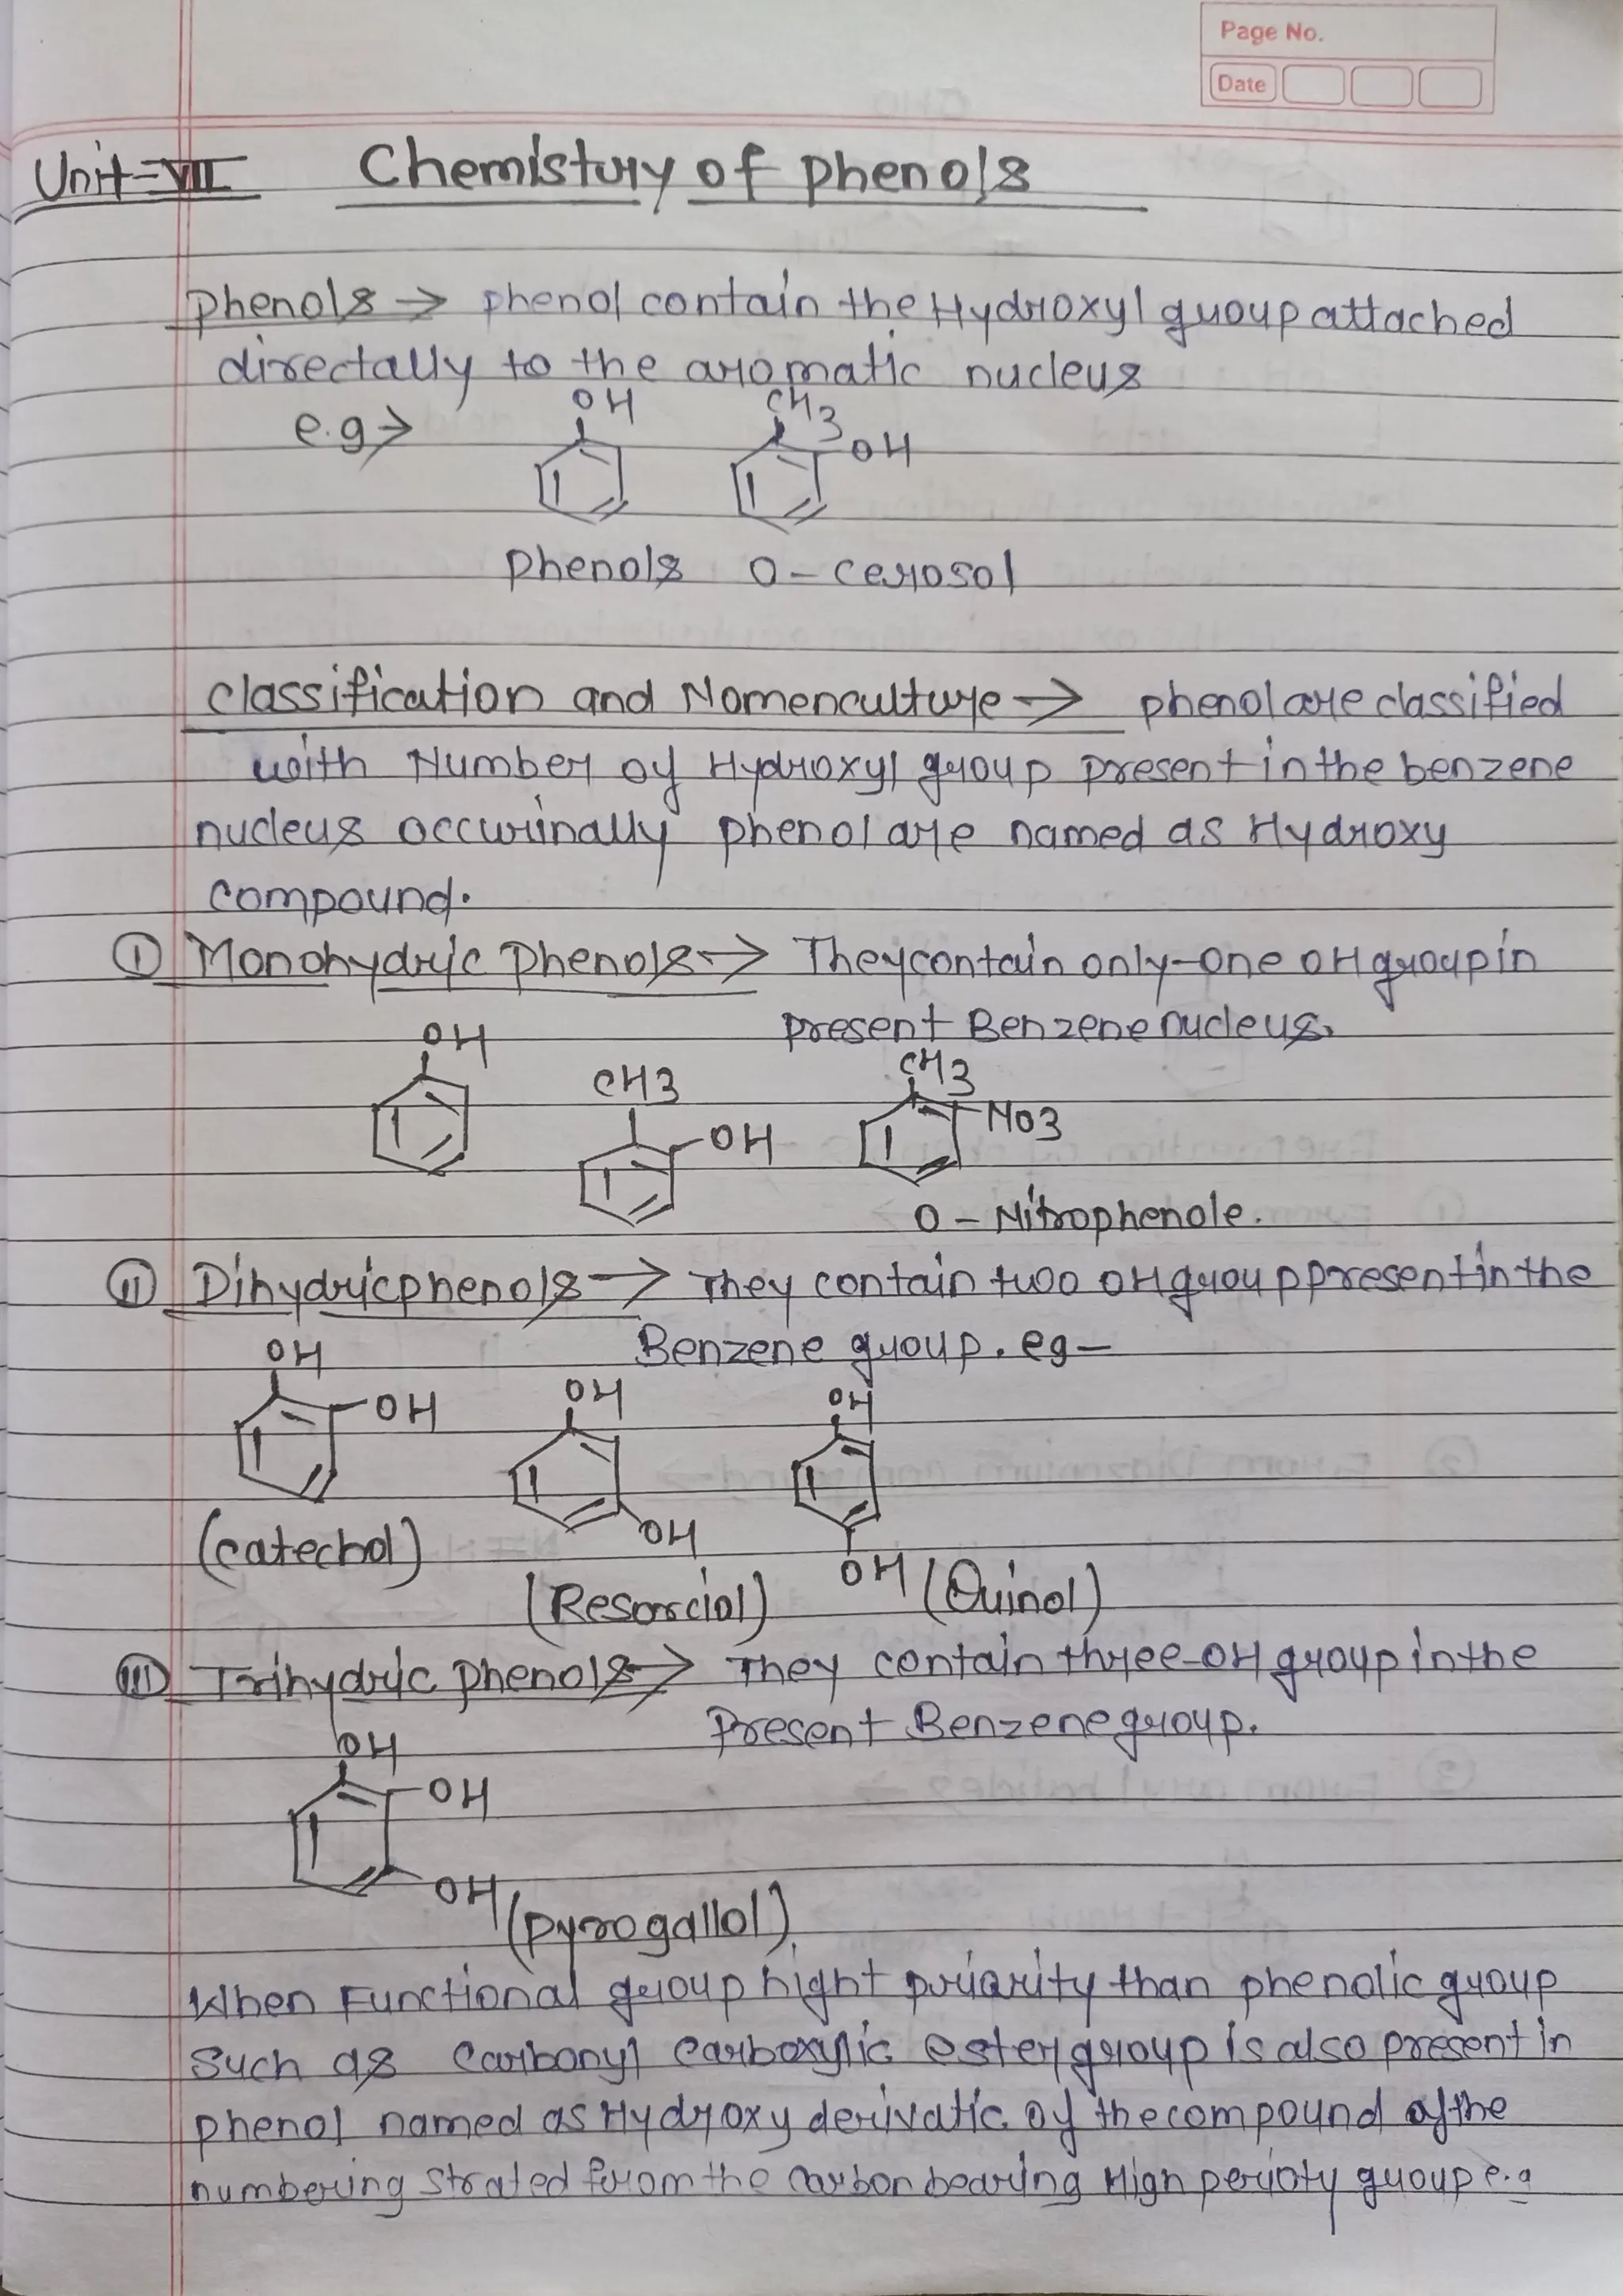 Page No.
Date
Unit-VII Chemistry of phenols
Phenols → phenol contain the Hydroxyl group attached
directally to the aromatic nucleus
e.g →
OH
CH3
OH
Phenols O-cerosol
classification and Nomenculture → phenol are classified
with Number of Hydroxyl group present in the benzene
nucleus occurinally phenol are named as Hydroxy
compound.
① Monohydric Phenols → They contain only-one OH group in
present Benzene nucleus.
OH
CH3
OH
CH3
NO3
O-Nitrophenole.
② Dihydric phenols → They contain two OH group present in the
Benzene group. eg-
OH
OH
OH
OH
OH
OH
(catechol)
(Resorciol)
(Quinol)
③ Trihydric phenols → They contain three-OH group in the
Present Benzene group.
OH
OH
OH
(pyrogallol)
When Functional group hight priarity than phenolic group
such as Carbonyl Carboxylic ester group is also present in
phenol named as Hydroxy derivatic of the compound of the
numbering strated from the carbon bearing High perioty group e.g